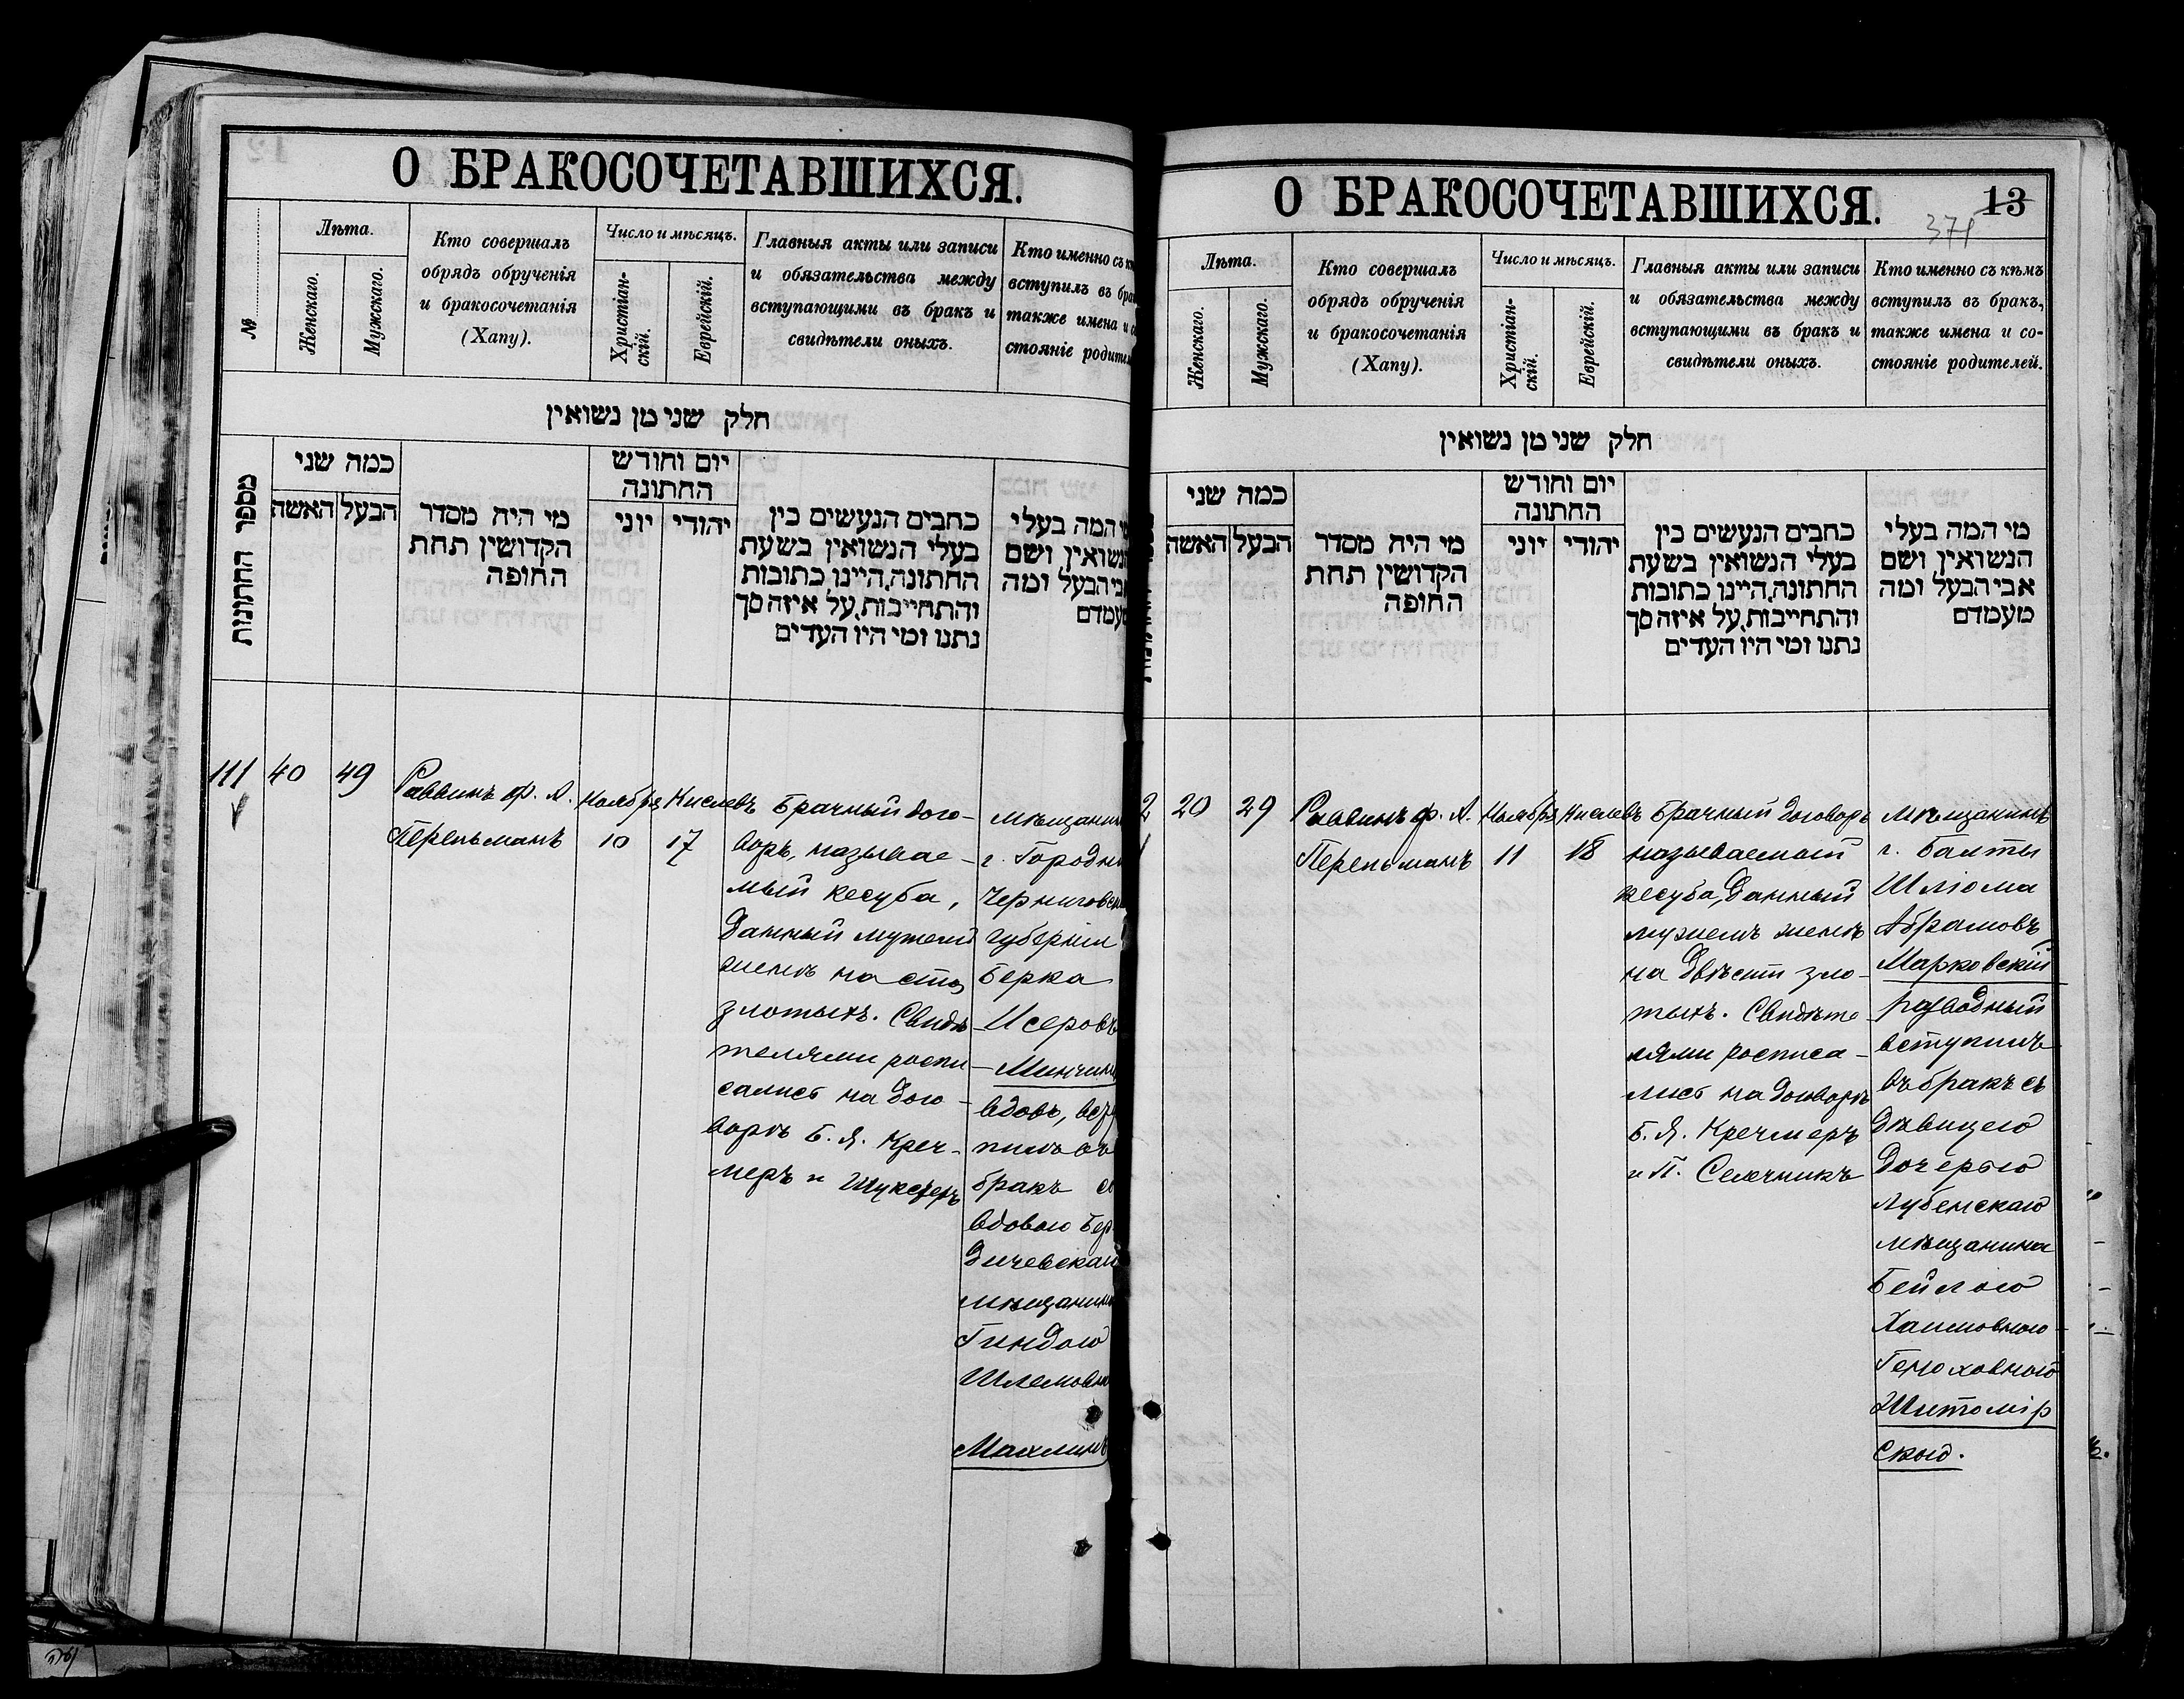 О БРАКОСОЧЕТАВШИХСЯ.
№
Лѣта.
Женскаго.
Мужскаго.
Кто совершалъ
обрядъ обрученія
и бракосочетанія
(Хапу).
Число и мѣсяцъ.
Христіан-
скій.
Еврейскій.
Главныя акты или записи
и обязательства между
вступающими въ бракъ и
свидѣтели оныхъ.
Кто именно съ
вступилъ въ
также имена и
стояніе
חלק שני מן נשואין
מספר החתונות
כמה שני
האשה
הבעל
מי היה מסדר
הקדושין תחת
החופה
יום וחודש
החתונה
יוני
יהודי
כתבים הנעשים בין
בעלי הנשואין בשעת
החתונה, היינו כתובות
והתחייבות, על איזה סך
נתנו ומי היו העדים
המה בעלי
ושם
הבעל ומה
111 40 49
Раввинъ ф. А.
Перельманъ
Ноября
10
Кислевъ
17
Брачный дого-
воръ, называе-
мый кесуба,
данный мужемъ
женѣ на сто
злотыхъ. Свидѣ-
телями распи-
сались на дого-
ворѣ Б. Я. Креч-
меръ и
г.
губерніи
Берка
Исеровъ
вдовъ,
бракъ
вдовою Бер-
Гиндою
О БРАКОСОЧЕТАВШИХСЯ.
13
Лѣта.
Женскаго.
Мужскаго.
Кто совершалъ
обрядъ обрученія
и бракосочетанія
(Хапу).
Число и мѣсяцъ.
Христіан-
скій.
Еврейскій.
Главныя акты или записи
и обязательства между
вступающими въ бракъ и
свидѣтели оныхъ.
Кто именно съ кѣмъ
вступилъ въ бракъ,
также имена и со-
стояніе родителей.
חלק שני מן נשואין
כמה שני
האשה
הבעל
מי היה מסדר
הקדושין תחת
החופה
יום וחודש
החתונה
יוני
יהודי
כתבים הנעשים בין
בעלי הנשואין בשעת
החתונה, היינו כתובות
והתחייבות, על איזה סך
נתנו ומי היו העדים
מי המה בעלי
הנשואין ושם
אבי הבעל ומה
מעמדם
2 20 29
Раввинъ ф. А.
Перельманъ
Ноября
11
Кислевъ
18
Брачный договоръ
называемый
кесуба, данный
мужемъ женѣ
на двѣсти зло-
тыхъ. Свидѣте-
лями росписа-
лись на договорѣ
Б. Я. Кречмеръ
и П. Селечникъ
мѣщанинъ
г. Балты
Шлiома
Абрамовъ
Марковскій
разводный
вступилъ
въ бракъ съ
дѣвицею
дочерью
Лубенскаго
мѣщанина
Бейлою
Хаимовною-
Геноховною
Житомір
скою.